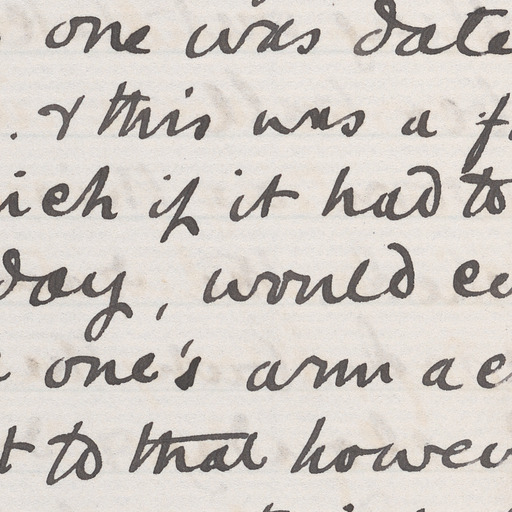 one was date
. & this was a f
ich if it had to
day, would
one's arm a
t to that howev